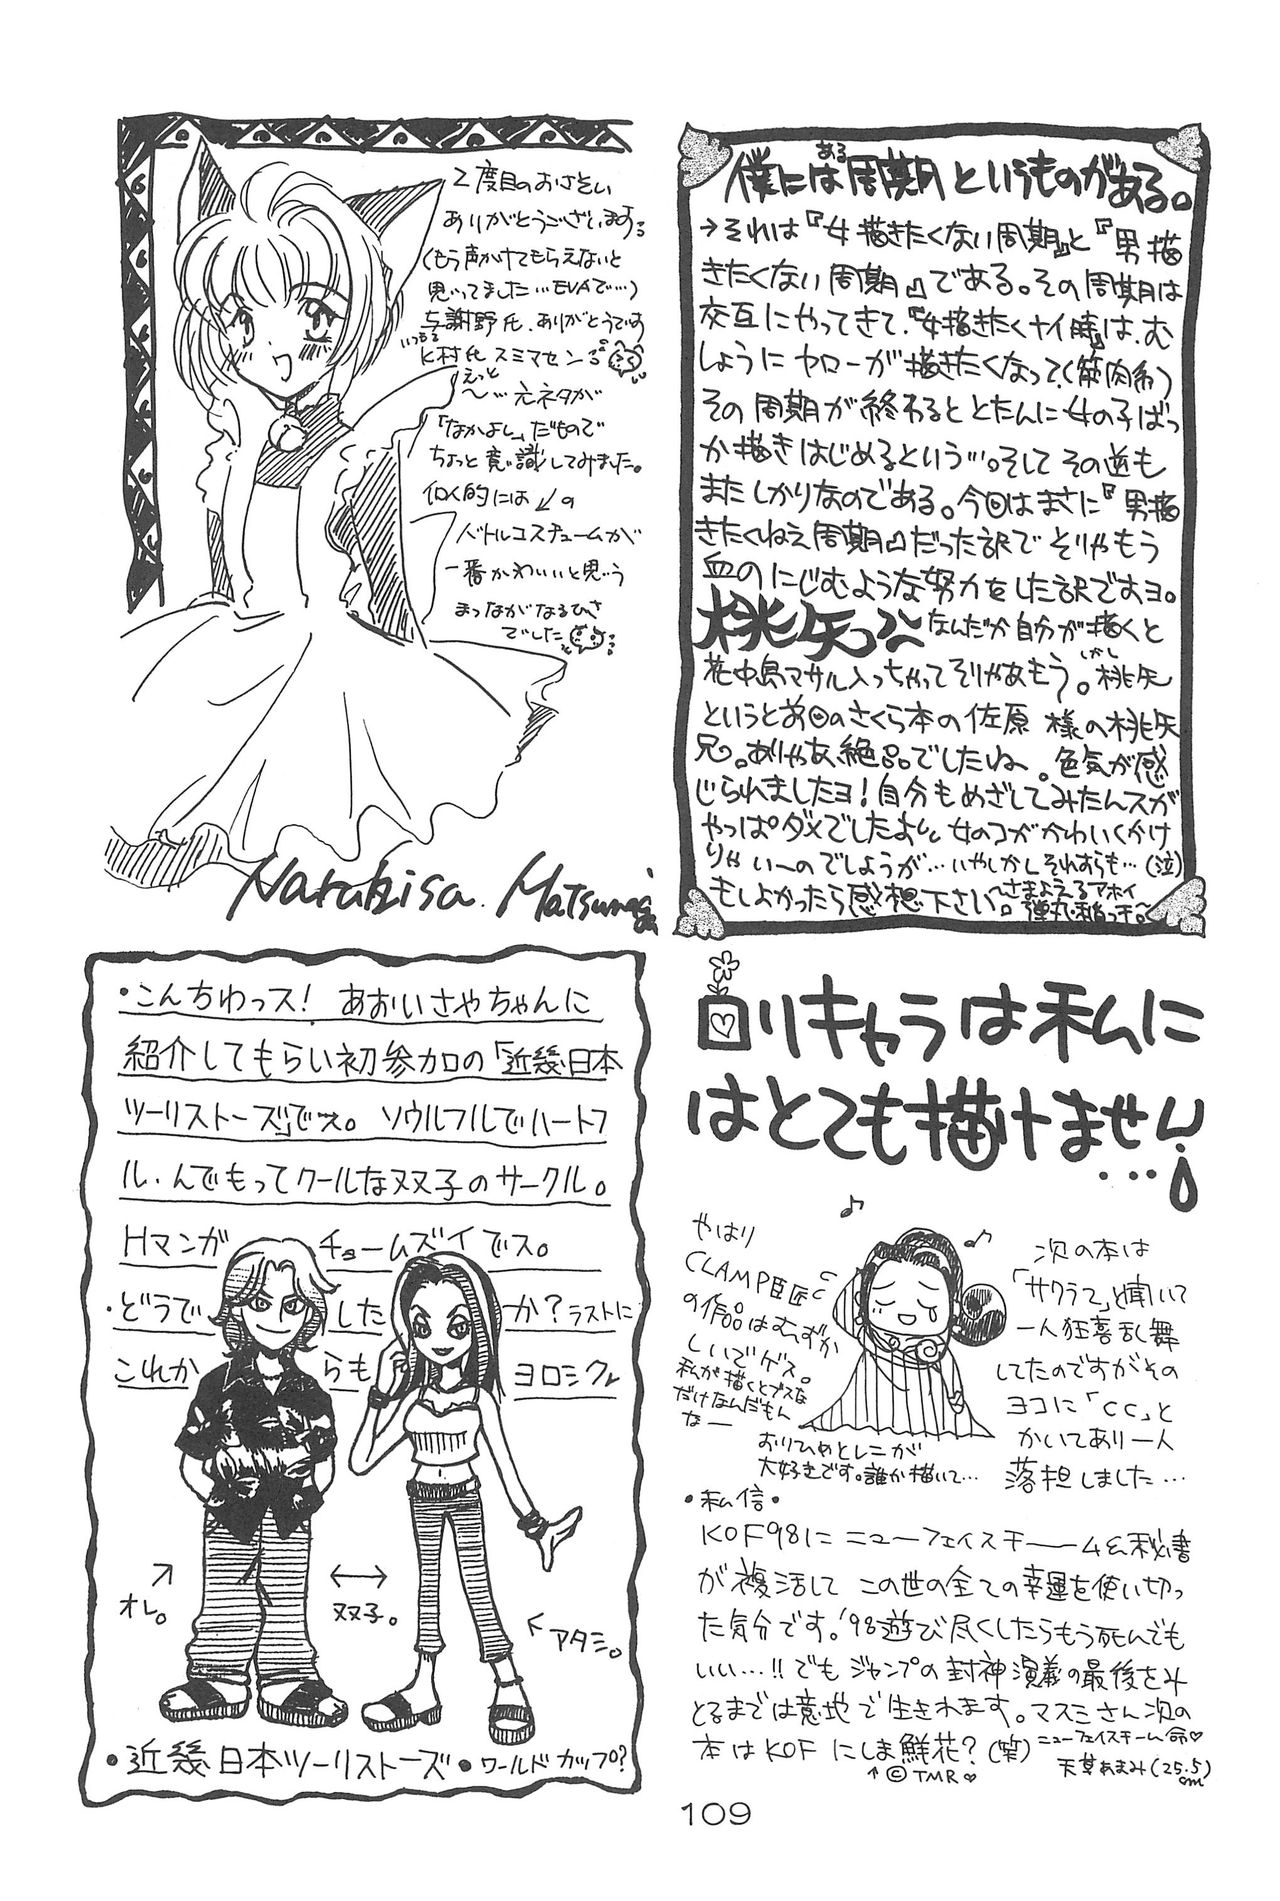 2度目のおさそい
ありがとうございます
(もう声かけてもらえないと
思ってました…EVAで…)
与謝野氏、ありがとうです
ヒ村氏 スミマセン
えっと
〜…元ネタが
「なかよし」だもので
ちょっと意識してみました。
個人的には↙の
バトルコスチュームが
一番かわいいと思う
まつながなるひさ
でした
Naruhisa. Matsunaga
僕には周期というものがある。
ある
→それは『女描きたくない周期』と『男描
きたくない周期』である。その周期は
交互にやってきて、『女描きたくナイ時』は、む
しょうにヤローが描きたくなって、(筋肉系)
その周期が終わるととたんに女の子ばっ
か描きはじめるという…。そしてその逆も
またしかりなのである。今回はまさに『男描
きたくねえ周期』だった訳でそりゃもう
血のにじむような努力をした訳ですヨ。
桃矢っ なんだか自分が描くと
花中島マサル入っちゃってそりゃあもう。しかし桃矢
というと前回のさくら本の佐原様の桃矢
兄。ありゃあ、絶品でしたね。色気が感
じられましたヨ!自分もめざしてみたんスが
やっぱダメでしたよ。女のコがかわいくかけ
りゃい〜のでしょうが…いやしかしそれすらも…(泣)
もしよかったら感想下さい。さまよえるアホイ〜
・こんちわっス! あおいさやちゃんに
紹介してもらい初参加の「近畿日本
ツーリストーズ」でス。ソウルフルでハートフ
ル・んでもってクールな双子のサークル。
Hマンガチョームズイでス。
・どうでしたか?ラストに
これからもヨロシクル
オレ。
双子。
アタシ。
・近畿日本ツーリストーズ・ワールドカップ?
ロリキャラは私に
はとても描けません…
やはり
CLAMP巨匠
の作品はむずか
しいでゲス。
私が描くとブスな
だけなんだもん
なー
おりひめとレニが
大好きです。誰か描いて…
次の本は
「サクラ」と聞いて
一人狂喜乱舞
してたのですがその
ヨコに「CC」と
かいてあり一人
落担しました…
・私信・
KOF98にニューフェイスチーム&秘書
が復活してこの世の全ての幸運を使い切っ
た気分です。'98遊び尽くしたらもう死んでも
いい…!!でもジャンプの封神演義の最後をみ
とるまでは意地で生きれます。マスミさん次の
本はKOFにしま鮮花?(笑)
↑©TMR♡
ニューフェイスチーム命♡
天草あまみ(25.5cm)
109